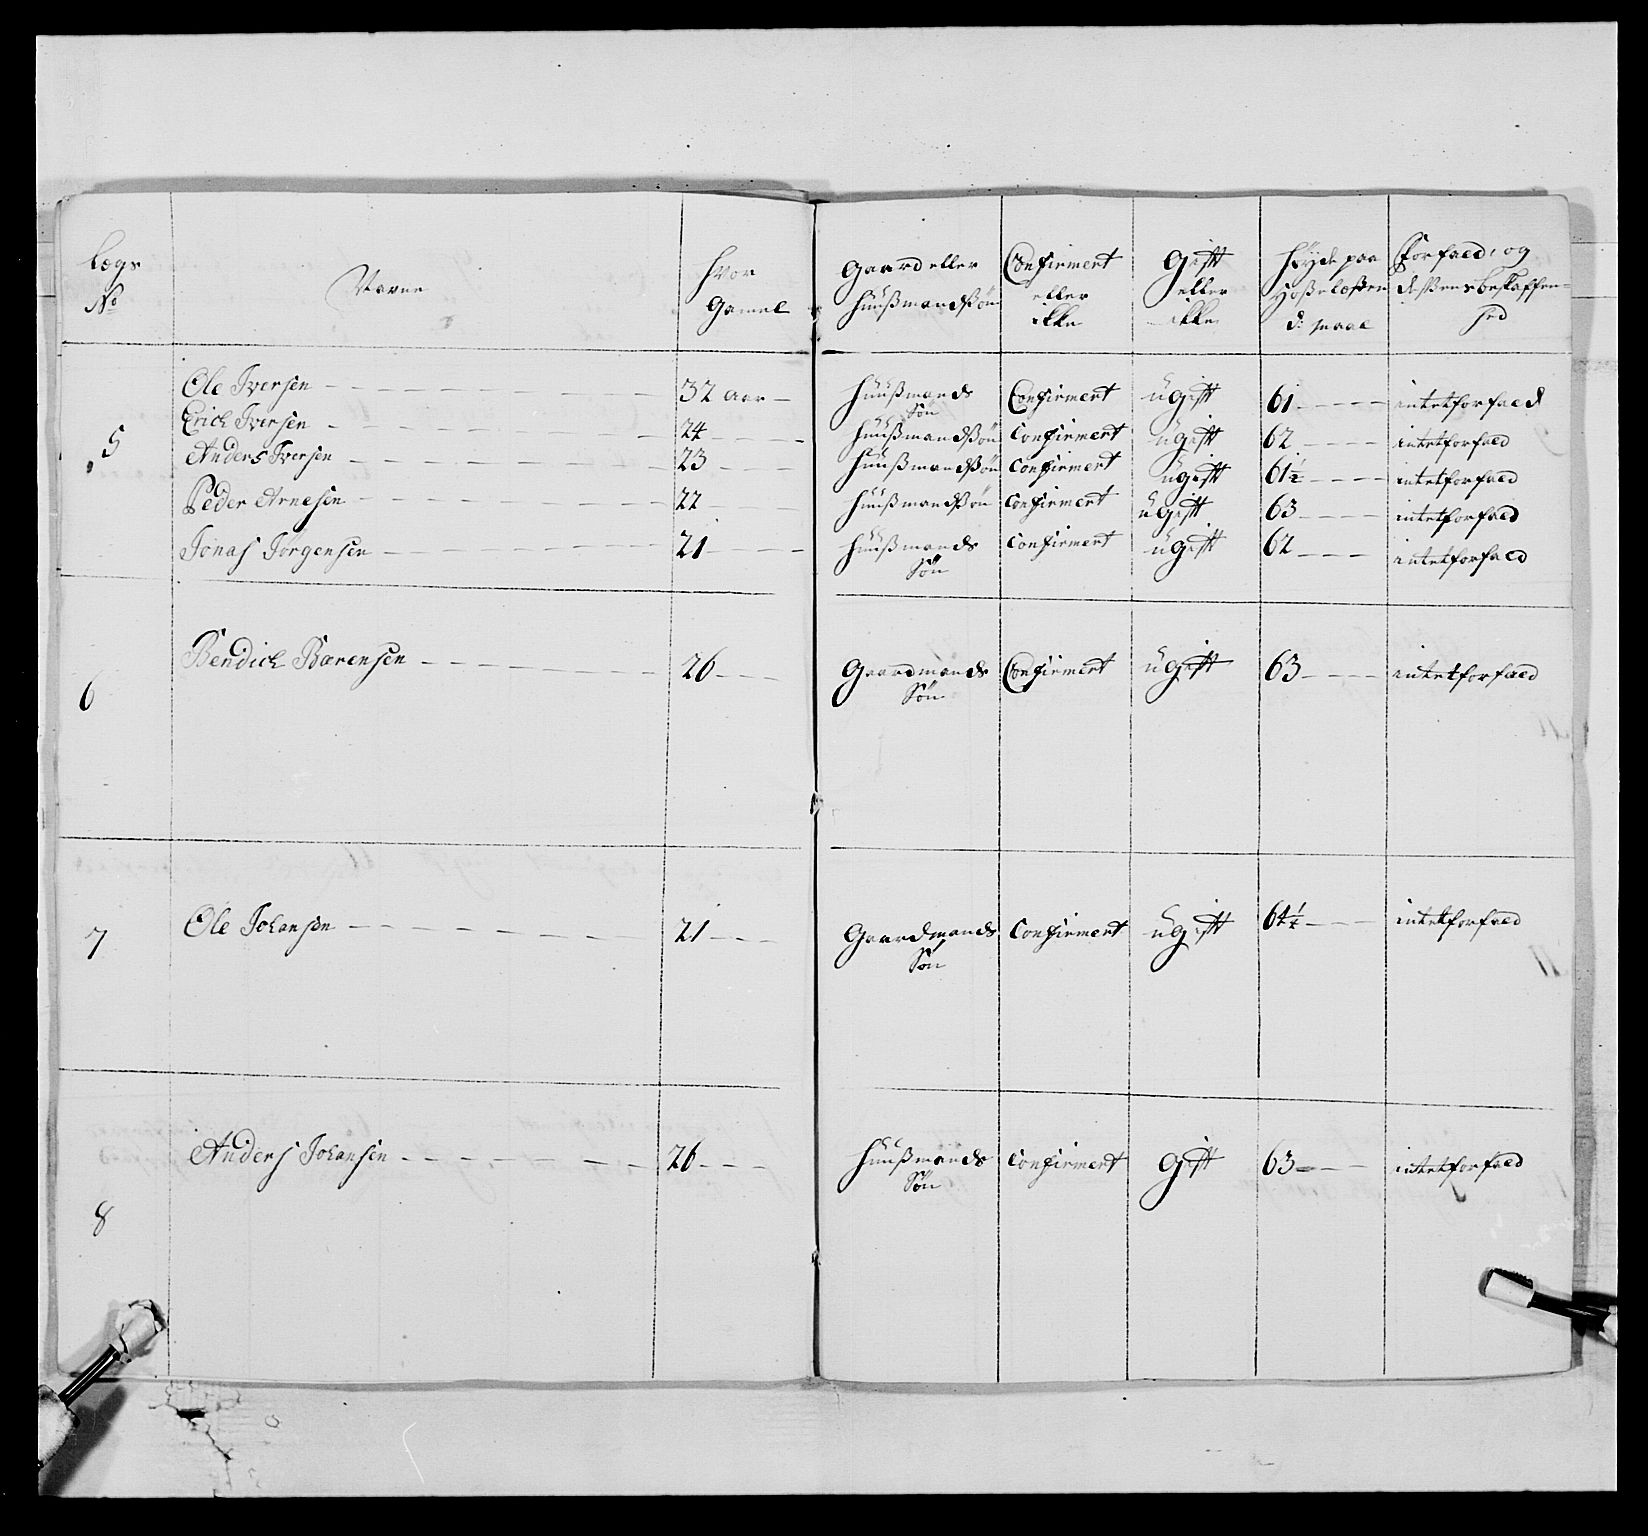 Lægs No | Navne | Hvor Gamel | Gaard eller Huusmandssøn | Confirmert eller ikke | Gift eller ikke | Høyde paa Hosselæsten d: maal | Forfald, og dessens beskaffenhed
5 | Ole Iversen | 32 aar | Huusmands Søn | Confirmert | ugift | 61 | intet forfald
Erich Iversen | 24 | Huusmandssøn | Confirmert | ugift | 62 | intet forfald
Anders Iversen | 23 | Huusmandssøn | Confirmert | ugift | 61½ | intet forfald
Peder Arnesen | 22 | Huusmandssøn | Confirmert | ugift | 63 | intet forfald
Jonas Jørgensen | 21 | Huusmands Søn | Confirmert | ugift | 62 | intet forfald
6 | Bendich Barensen | 26 | Gaardmands Søn | Confirmert | ugift | 63 | intet forfald
7 | Ole Johansen | 21 | Gaardmands Søn | Confirmert | ugift | 64¼ | intet forfald
8 | Anders Johansen | 26 | Huusmands Søn | Confirmert | Gift | 63 | intet forfald